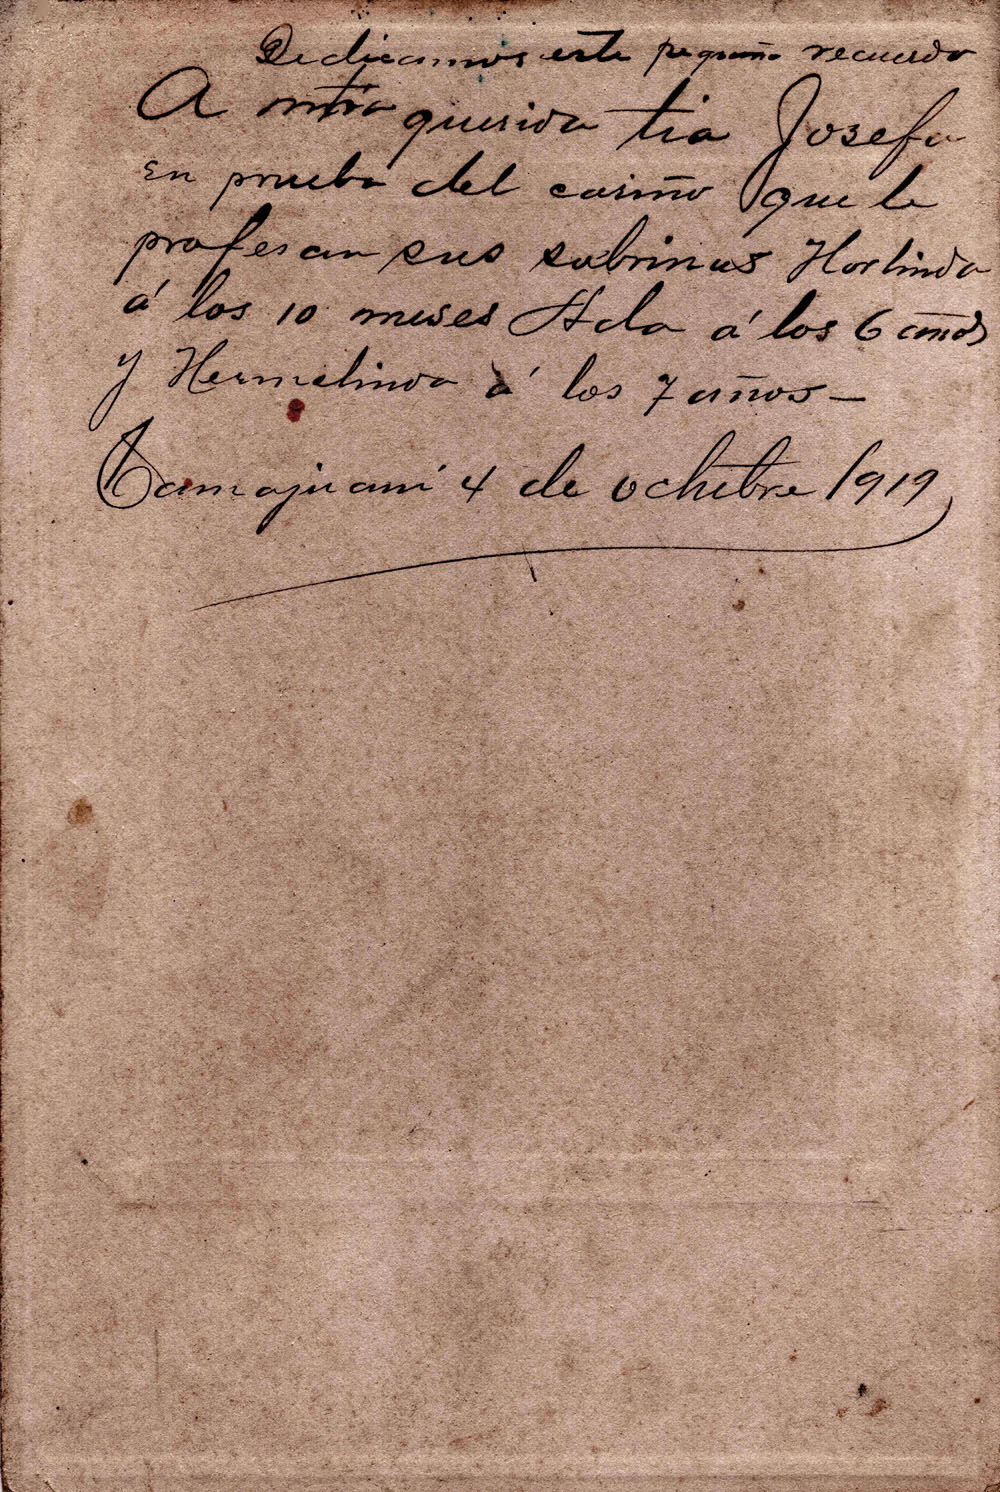 Dedicamos este pequeño recuerdo
A ntra querida tia Josefa
en prueba del cariño que le
profesan sus sobrinas Horlinda
á los 10 meses Alda á los 6 años
y Hermelinda á los 7 años—
Camajuaní 4 de octubre 1919